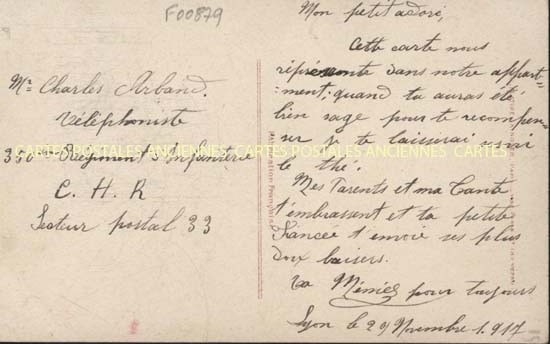 F00879
Mr Charles Arbaud.
Téléphoniste
350e Régiment d'Infanterie
C. H. R
Secteur postal 33
CARTES POSTALES ANCIENNES CARTES POSTALES ANCIENNES CARTES
Mon petit adoré,
Cette carte nous
représente dans notre appart-
-ment; quand tu auras été
bien sage pour te recompen-
ser je te laisserai servir
le thé.
Mes Parents et ma Tante
t'embrassent et ta petite
fiancée t'envoie ses plus
doux baisers.
ta Mémée pour toujours
Lyon le 29 Novembre 1.917